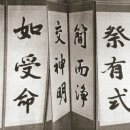 祭有式
簡而淨
交神明
如受命